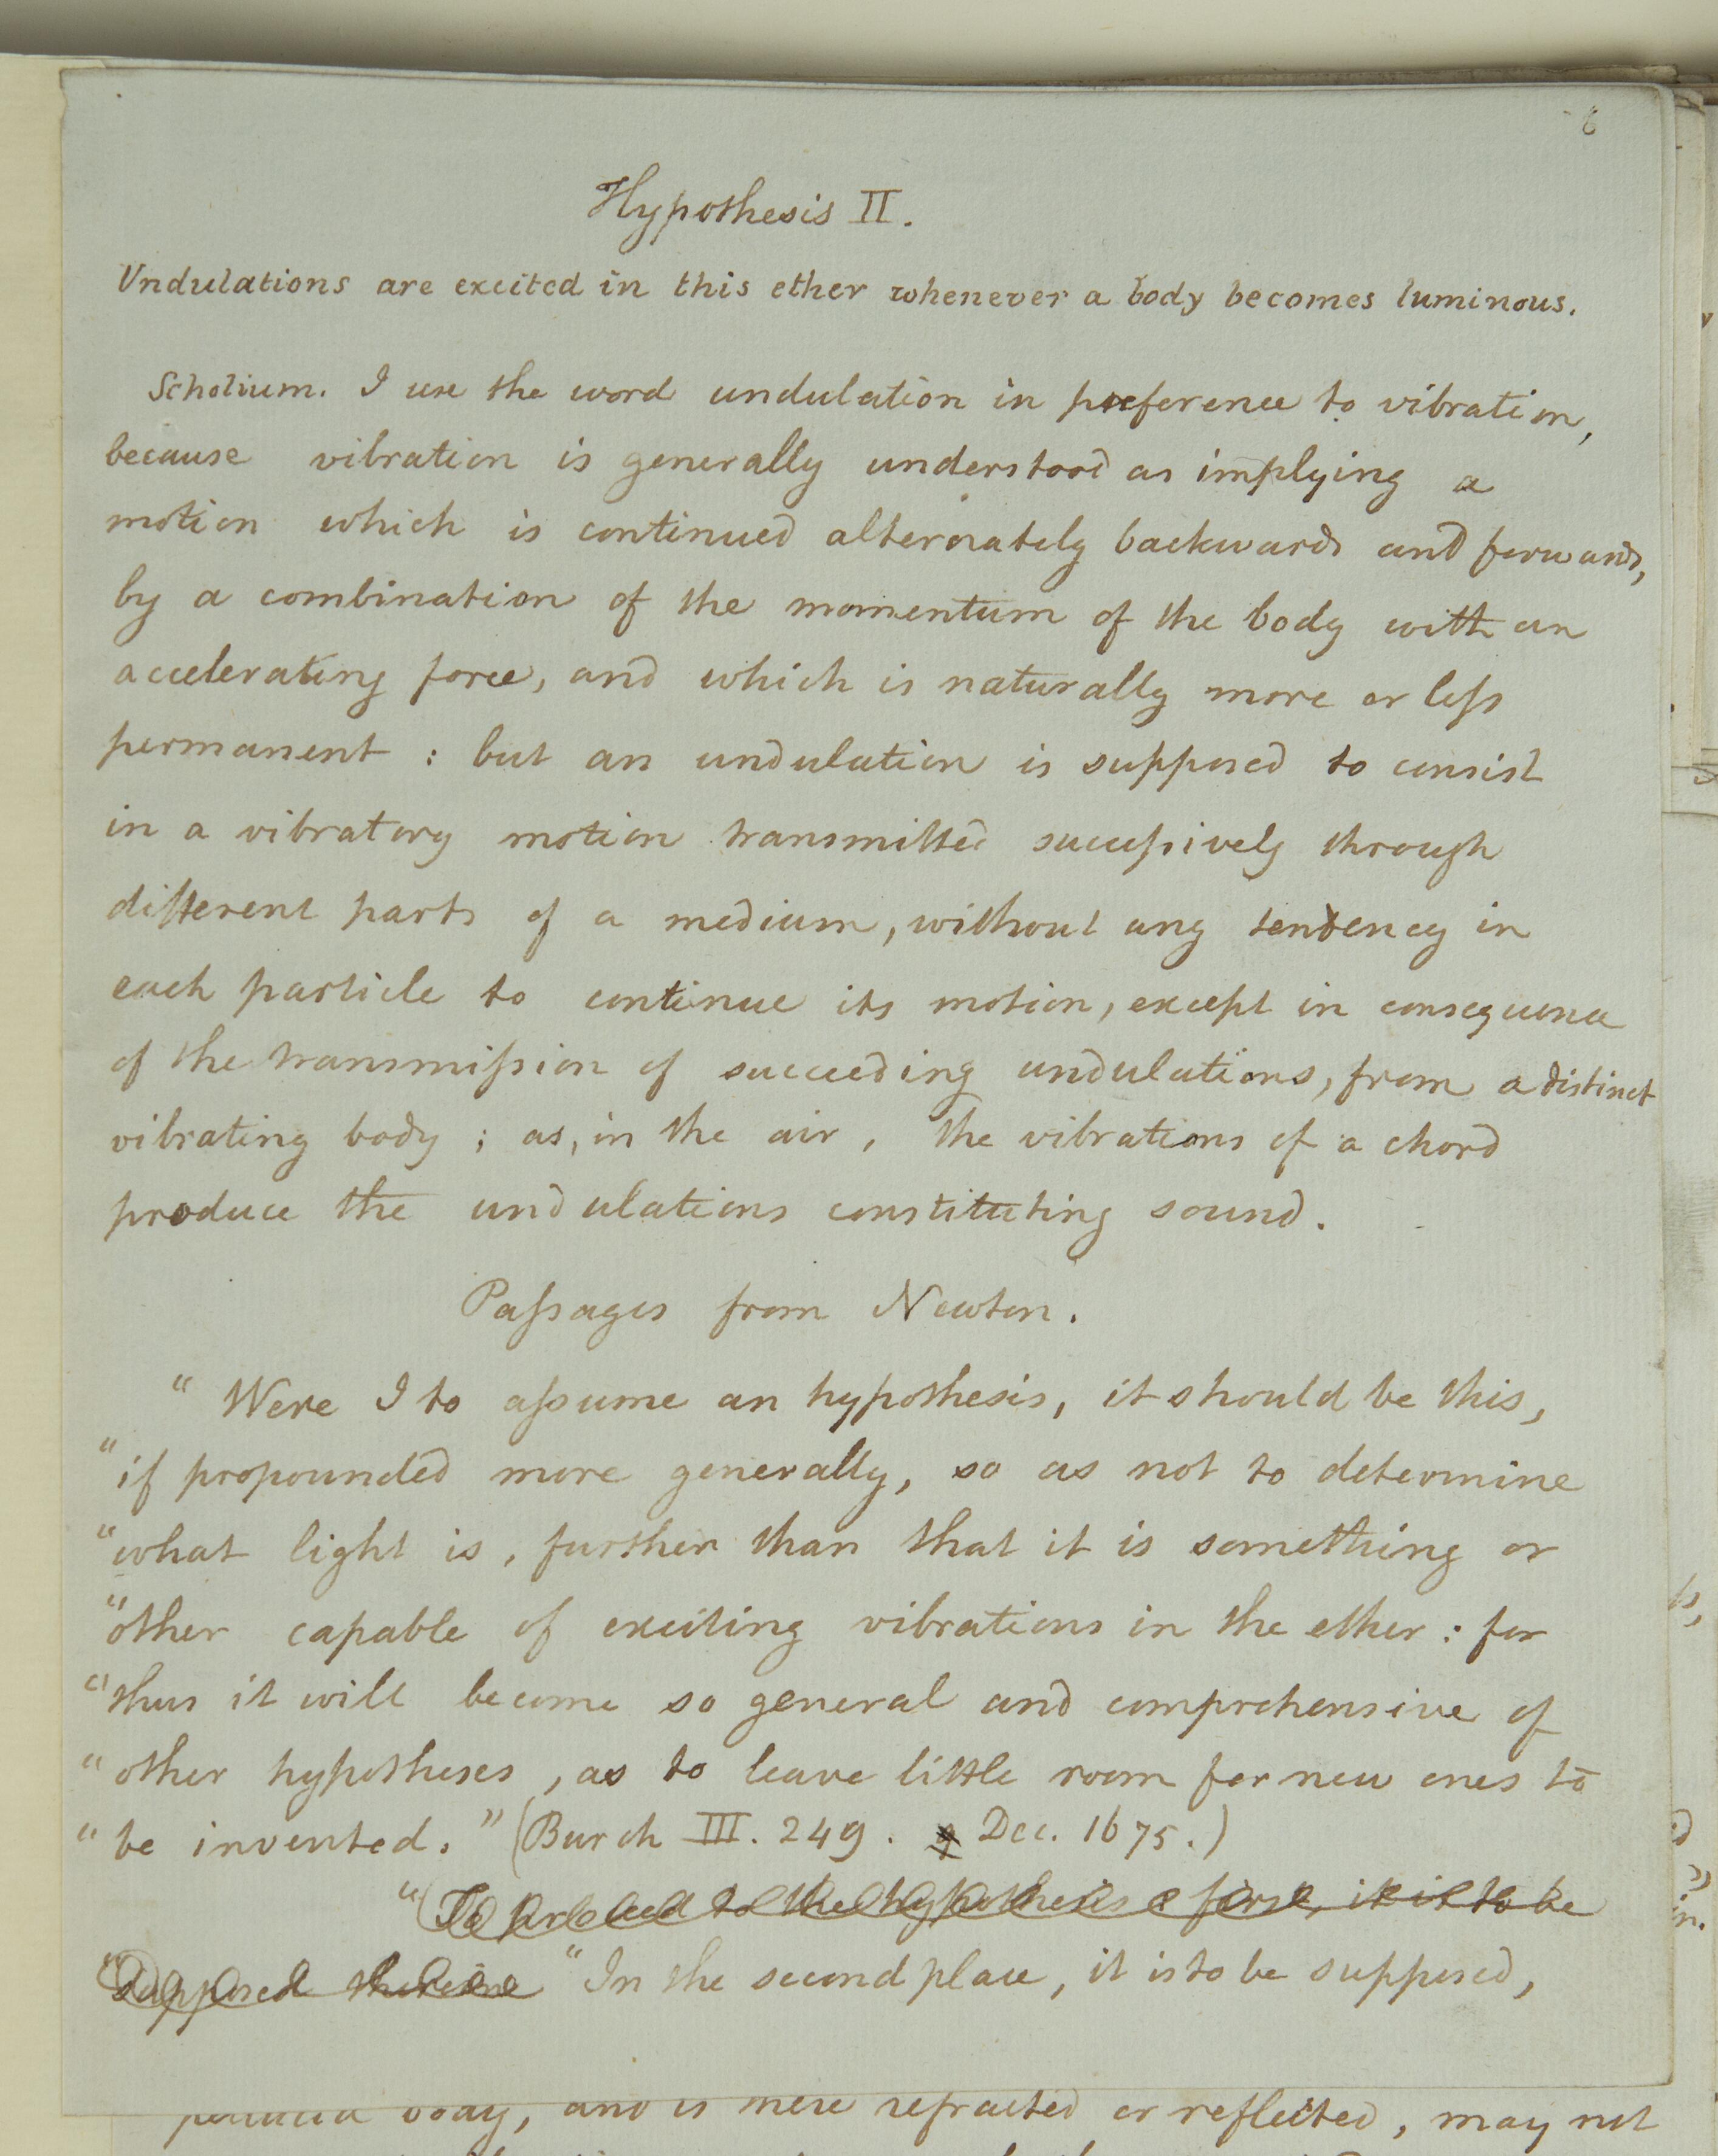 6
Hypothesis II.
Undulations are excited in this ether whenever a body becomes luminous.
Scholium. I use the word undulation in preference to vibration,
because vibration is generally understood as implying a
motion which is continued alternately backwards and forwards,
by a combination of the momentum of the body with an
accelerating force, and which is naturally more or leſs
permanent : but an undulation is supposed to consist
in a vibratory motion transmitted succeſsively through
different parts of a medium, without any tendency in
each particle to continue its motion, except in consequence
of the transmiſsion of succeeding undulations, from a distinct
vibrating body ; as, in the air, the vibrations of a chord
produce the undulations constituting sound.
Paſsages from Newton.
" Were I to aſsume an hypothesis, it should be this,
" if propounded more generally, so as not to determine
" what light is, further than that it is something or
" other capable of exciting vibrations in the ether : for
" thus it will become so general and comprehensive of
" other hypotheses, as to leave little room for new ones to
" be invented. " (Burch III. 249. Dec. 1675.)
" To proceed to the hypothesis first, it is to be
" supposed therein " In the second place, it is to be supposed,
body, and is there refracted or reflected, may not